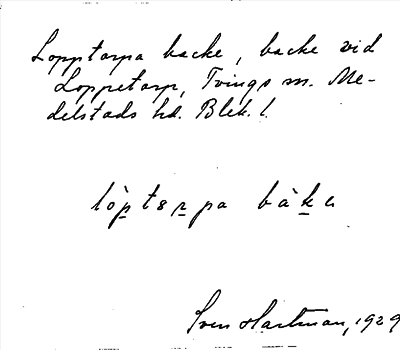 Lopptorpa backe, backe vid
Loppetorp, Tvings sn. Me-
delstads hd. Blek. l.
lòptɷrpa bàkɷ
Sven Hartman, 1929